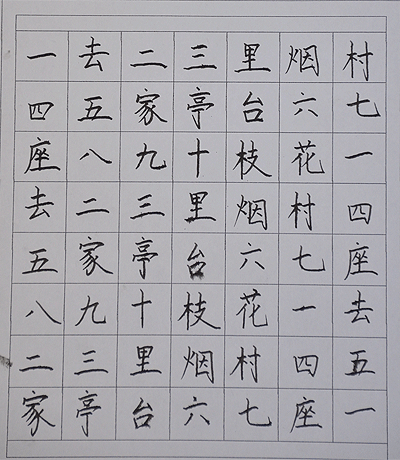 一去二三里烟村
四五家亭台六七
座八九十枝花一
去二三里烟村四
五家亭台六七座
八九十枝花一去
二三里烟村四五
家亭台六七座一